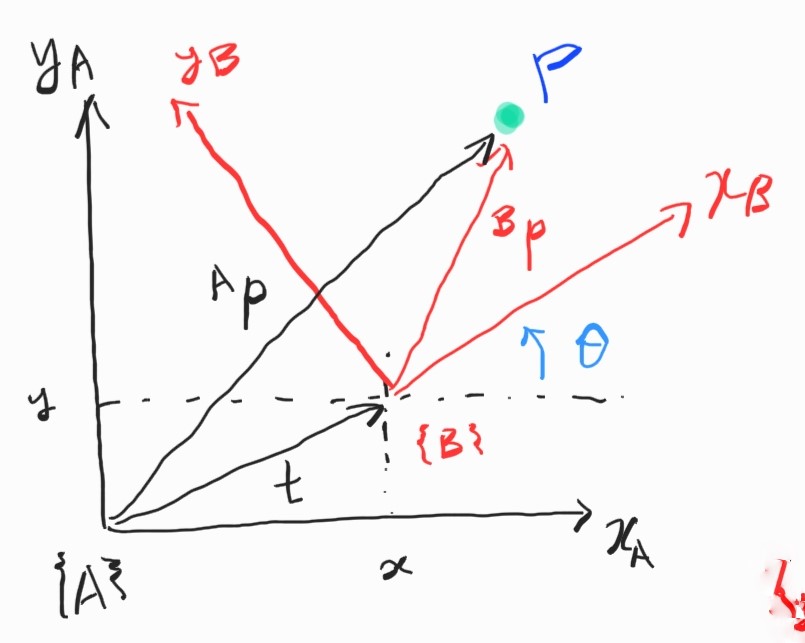 yA
yB
P
xB
Bp
Ap
θ
y
{B}
t
{A}
x
xA